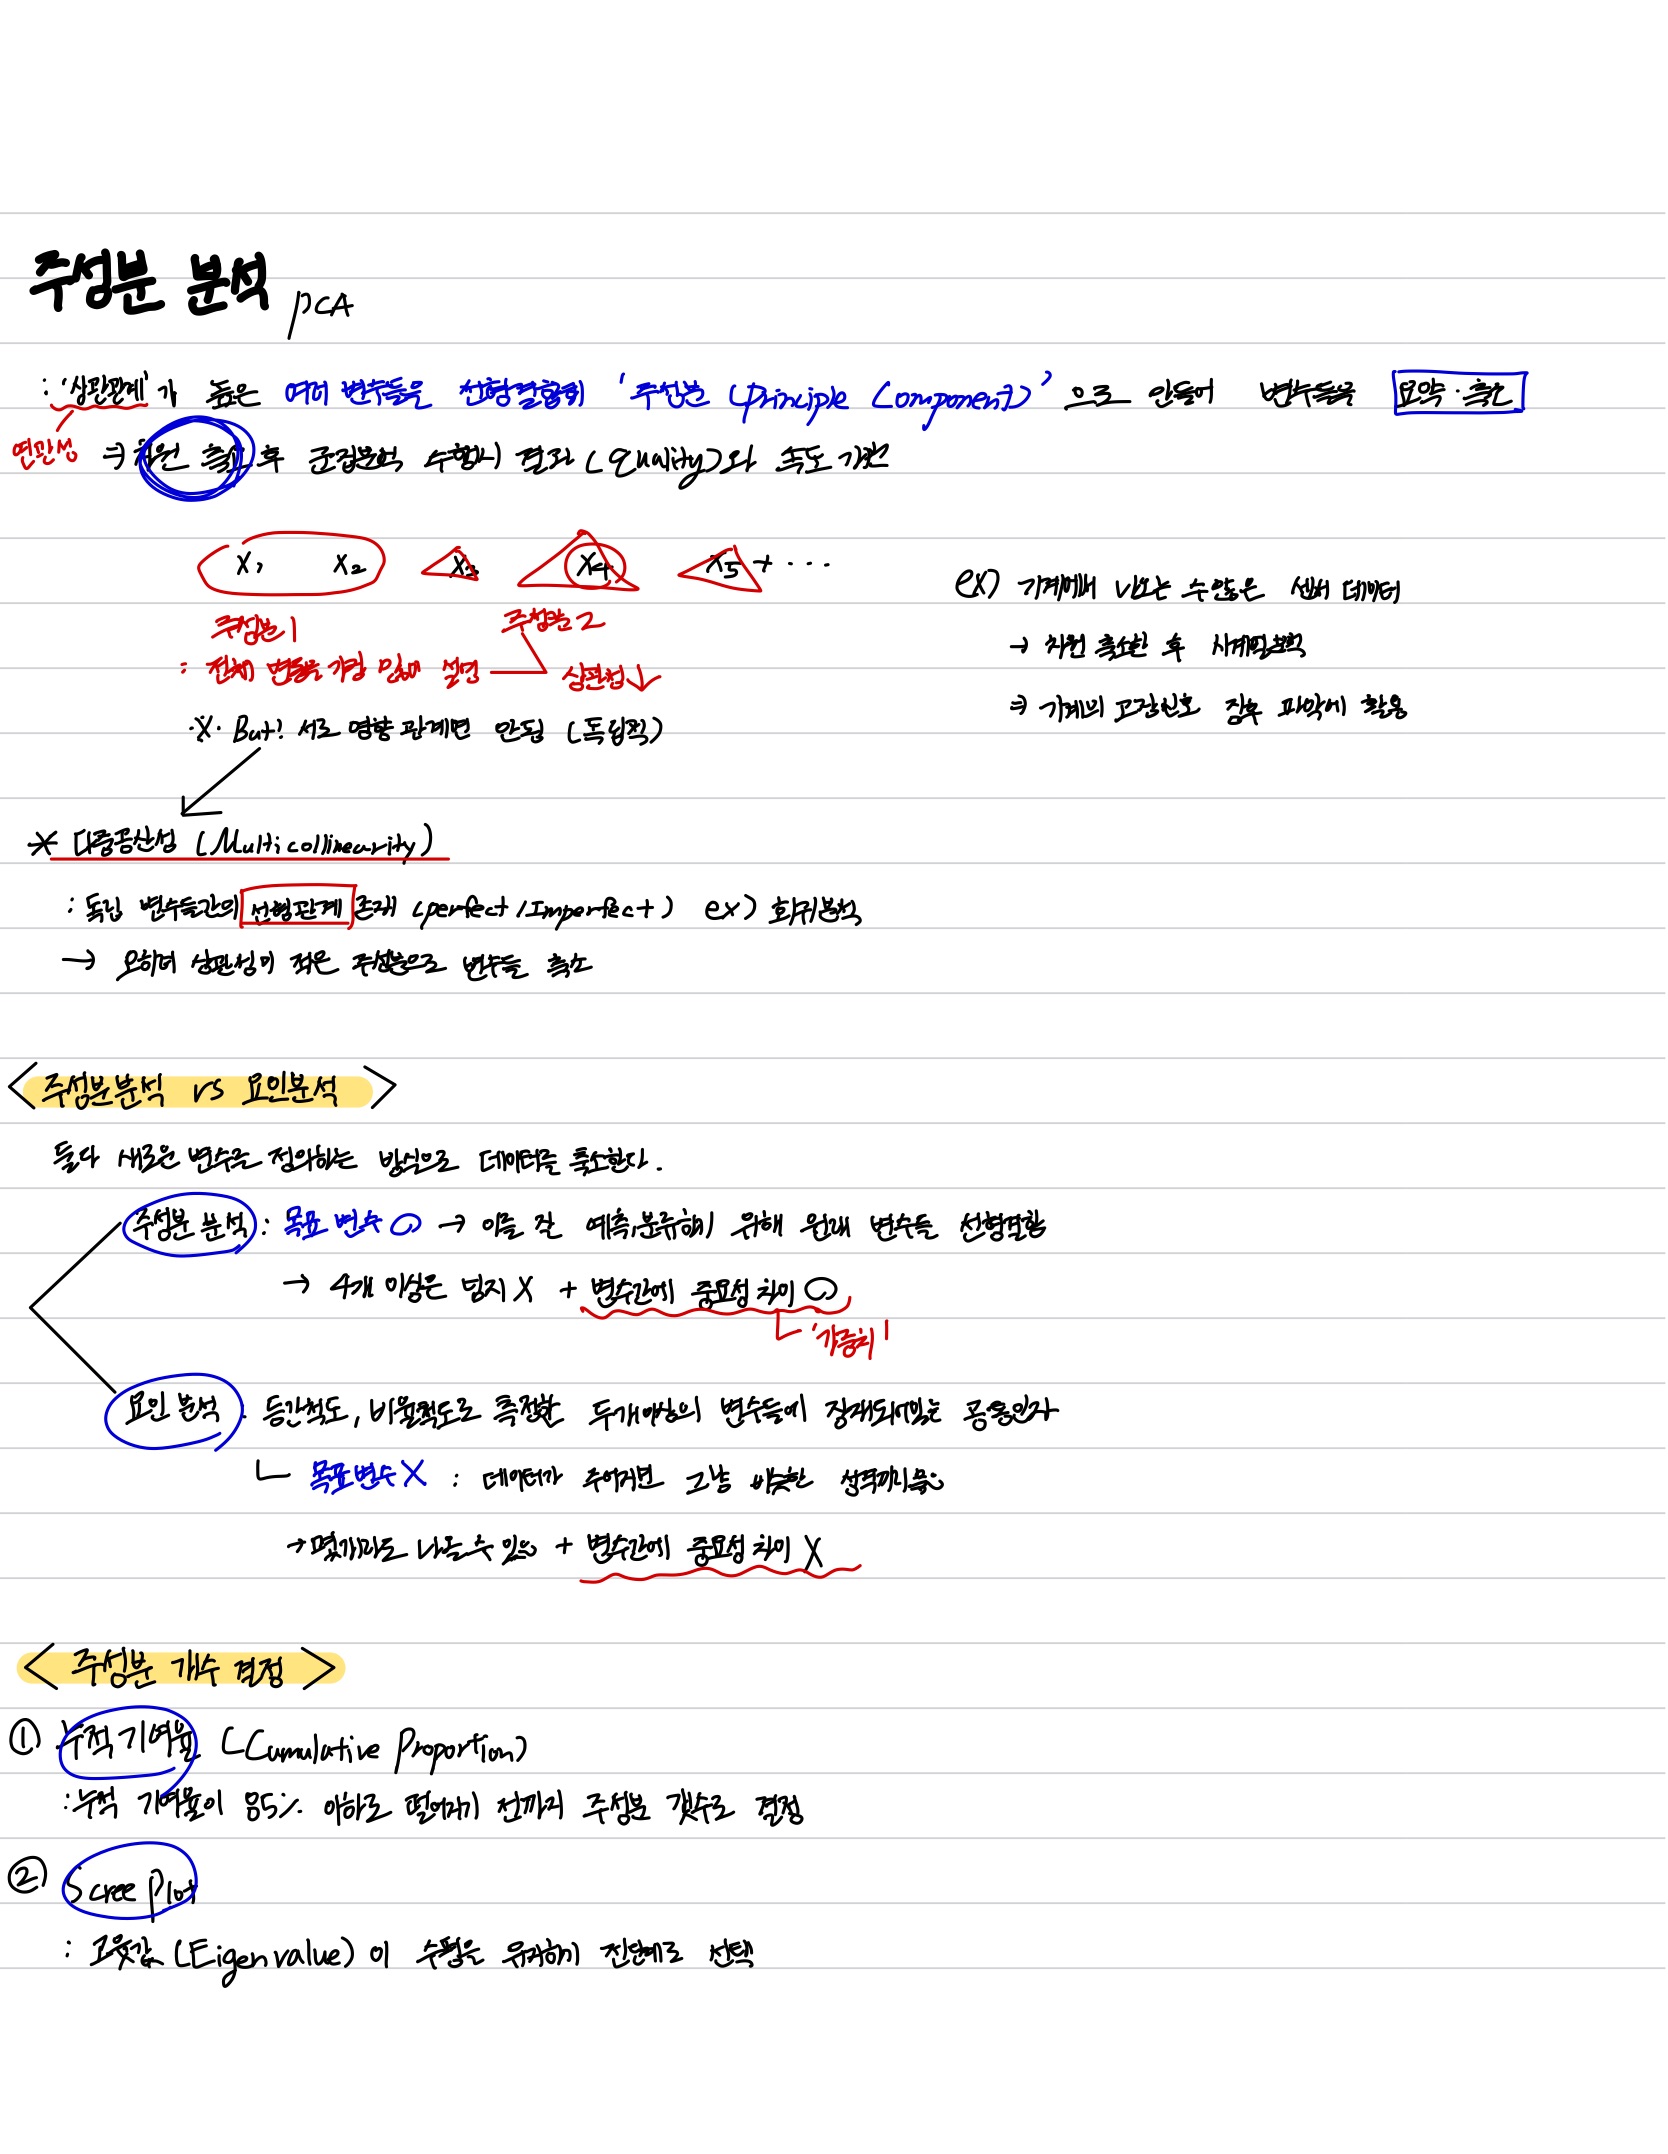 주성분 분석 PCA
: '상관관계'가 높은 여러 변수들을 선형결합해 '주성분 (Principle Component)' 으로 만들어 변수들을 요약·축소
연관성 ⇒ 차원 축소 후 군집분석 수행시 결과 (Quality)와 속도 개선
X1 X2 X3 X4 X5 + ...
주성분1 주성분2
: 전체 변동을 가장 많이 설명 상관성↓
※ But! 서로 영향 관계면 안됨 (독립적)
ex) 기계에서 나오는 수많은 센서 데이터
→ 차원 축소한 후 시계열분석
⇒ 기계의 고장신호 징후 파악에 활용
* 다중공산성 (Multicollinearity)
: 독립 변수들간의 선형관계 존재 (perfect / Imperfect) ex) 회귀분석
→ 오히려 상관성이 적은 주성분으로 변수들 축소
<주성분분석 vs 요인분석>
둘다 새로운 변수를 정의하는 방식으로 데이터를 축소한다.
주성분 분석 : 목표 변수 O → 이를 잘 예측,분류하기 위해 원래 변수들 선형결합
→ 4개 이상은 넘지 X + 변수간에 중요성 차이 O
'가중치'
요인 분석 : 등간척도, 비율척도로 측정한 두개이상의 변수들에 잠재되어있는 공통인자
목표변수 X : 데이터가 주어지면 그냥 비슷한 성격끼리 묶음
→ 몇개라도 나올수 있음 + 변수간에 중요성 차이 X
<주성분 개수 결정>
① 누적 기여율 (Cumulative Proportion)
: 누적 기여율이 85% 이하로 떨어지기 전까지 주성분 갯수로 결정
② Scree Plot
: 고윳값 (Eigen value) 이 수평을 유지하기 전단계로 선택